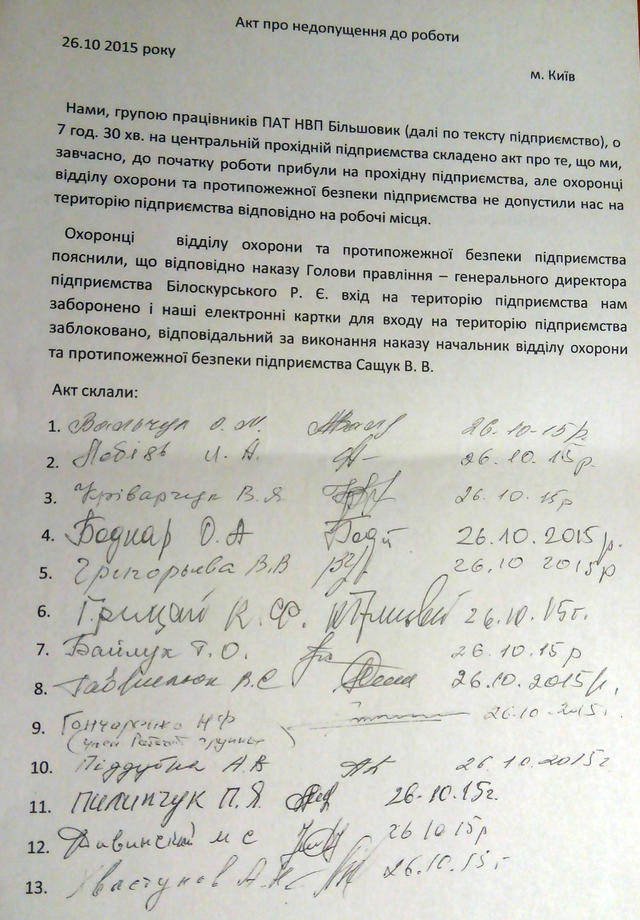 Акт про недопущення до роботи
26.10 2015 року
м. Київ
Нами, групою працівників ПАТ НВП Більшовик (далі по тексту підприємство), о
7 год. 30 хв. на центральній прохідній підприємства складено акт про те, що ми,
завчасно, до початку роботи прибули на прохідну підприємства, але охоронці
відділу охорони та протипожежної безпеки підприємства не допустили нас на
територію підприємства відповідно на робочі місця.
Охоронці відділу охорони та протипожежної безпеки підприємства
пояснили, що відповідно наказу Голови правління – генерального директора
підприємства Білоскурського Р. Є. вхід на територію підприємства нам
заборонено і наші електронні картки для входу на територію підприємства
заблоковано, відповідальний за виконання наказу начальник відділу охорони
та протипожежної безпеки підприємства Сащук В. В.
Акт склали:
1. О. М. 26.10-15р.
2. И. А. 26.10.15р.
3. В.Я 26.10.15р
4. Боднар О.А 26.10.2015р.
5. Григорьева В.В 26.10 2015р
6. Грицай К.Ф. 26.10.15г.
7. Байлук Т.О. 26.10.15р
8. В.С 26.10.2015р.
9. Гончаренко Н Ф 26.10.2015г.
10. Піддубна А.В 26.10.2015г
11. Пилипчук П.Я 26.10.15г.
12. М С 26 10 15р
13. Хвастунов А.Н 26.10.15г